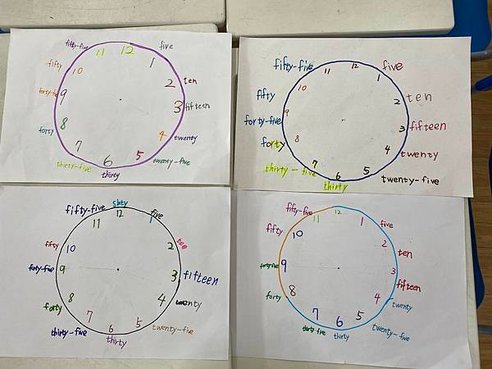 fifty-five 12 five
11 1
fifty 10 2 ten
9 3 fifteen
forty 8 4 twenty
7 5
thirty-five 6 twenty-five
thirty
fifty-five 11 12 1 five
fifty 10 2 ten
forty-five 9 3 fifteen
forty 8 4 twenty
7 6 5
thirty-five thirty twenty-five
fifty-five 12 five
11 1
fifty 10 2
forty-five 9 3 fifteen
forty 8 4 twenty
7 6 5
thirty-five thirty twenty-five
fifty-five 11 12 1 five
fifty 10 2 ten
9 3
forty 8 4 fifteen
7 6 5 twenty
thirty-five thirty twenty-five